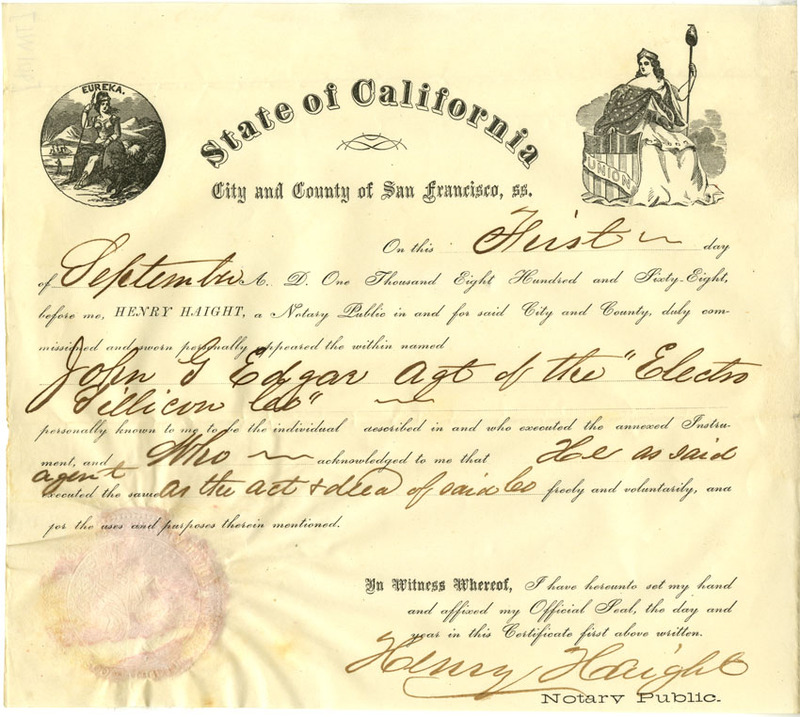 EUREKA.
State of California
UNION
City and County of San Francisco, ss.
On this First day
of September A. D. One Thousand Eight Hundred and Sixty-Eight,
before me, HENRY HAIGHT, a Notary Public in and for said City and County, duly com-
missioned and sworn personally appeared the within named
John G Edgar Agt of the "Electro
Sillicon Co"
personally known to me to be the individual described in and who executed the annexed Instru-
ment, and Who acknowledged to me that He as said
agent
executed the same as the act & deed of said Co freely and voluntarily, and
for the uses and purposes therein mentioned.
In Witness Whereof, I have hereunto set my hand
and affixed my Official Seal, the day and
year in this Certificate first above written.
Henry Haight
Notary Public.